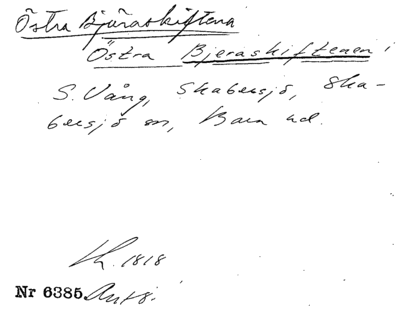 Östra Bjäraskiftena
Östra Bjeraskiftenen i
S. Vång, Skabersjö, Ska-
bersjö sn, Bara hd.
1818
Nr 6385